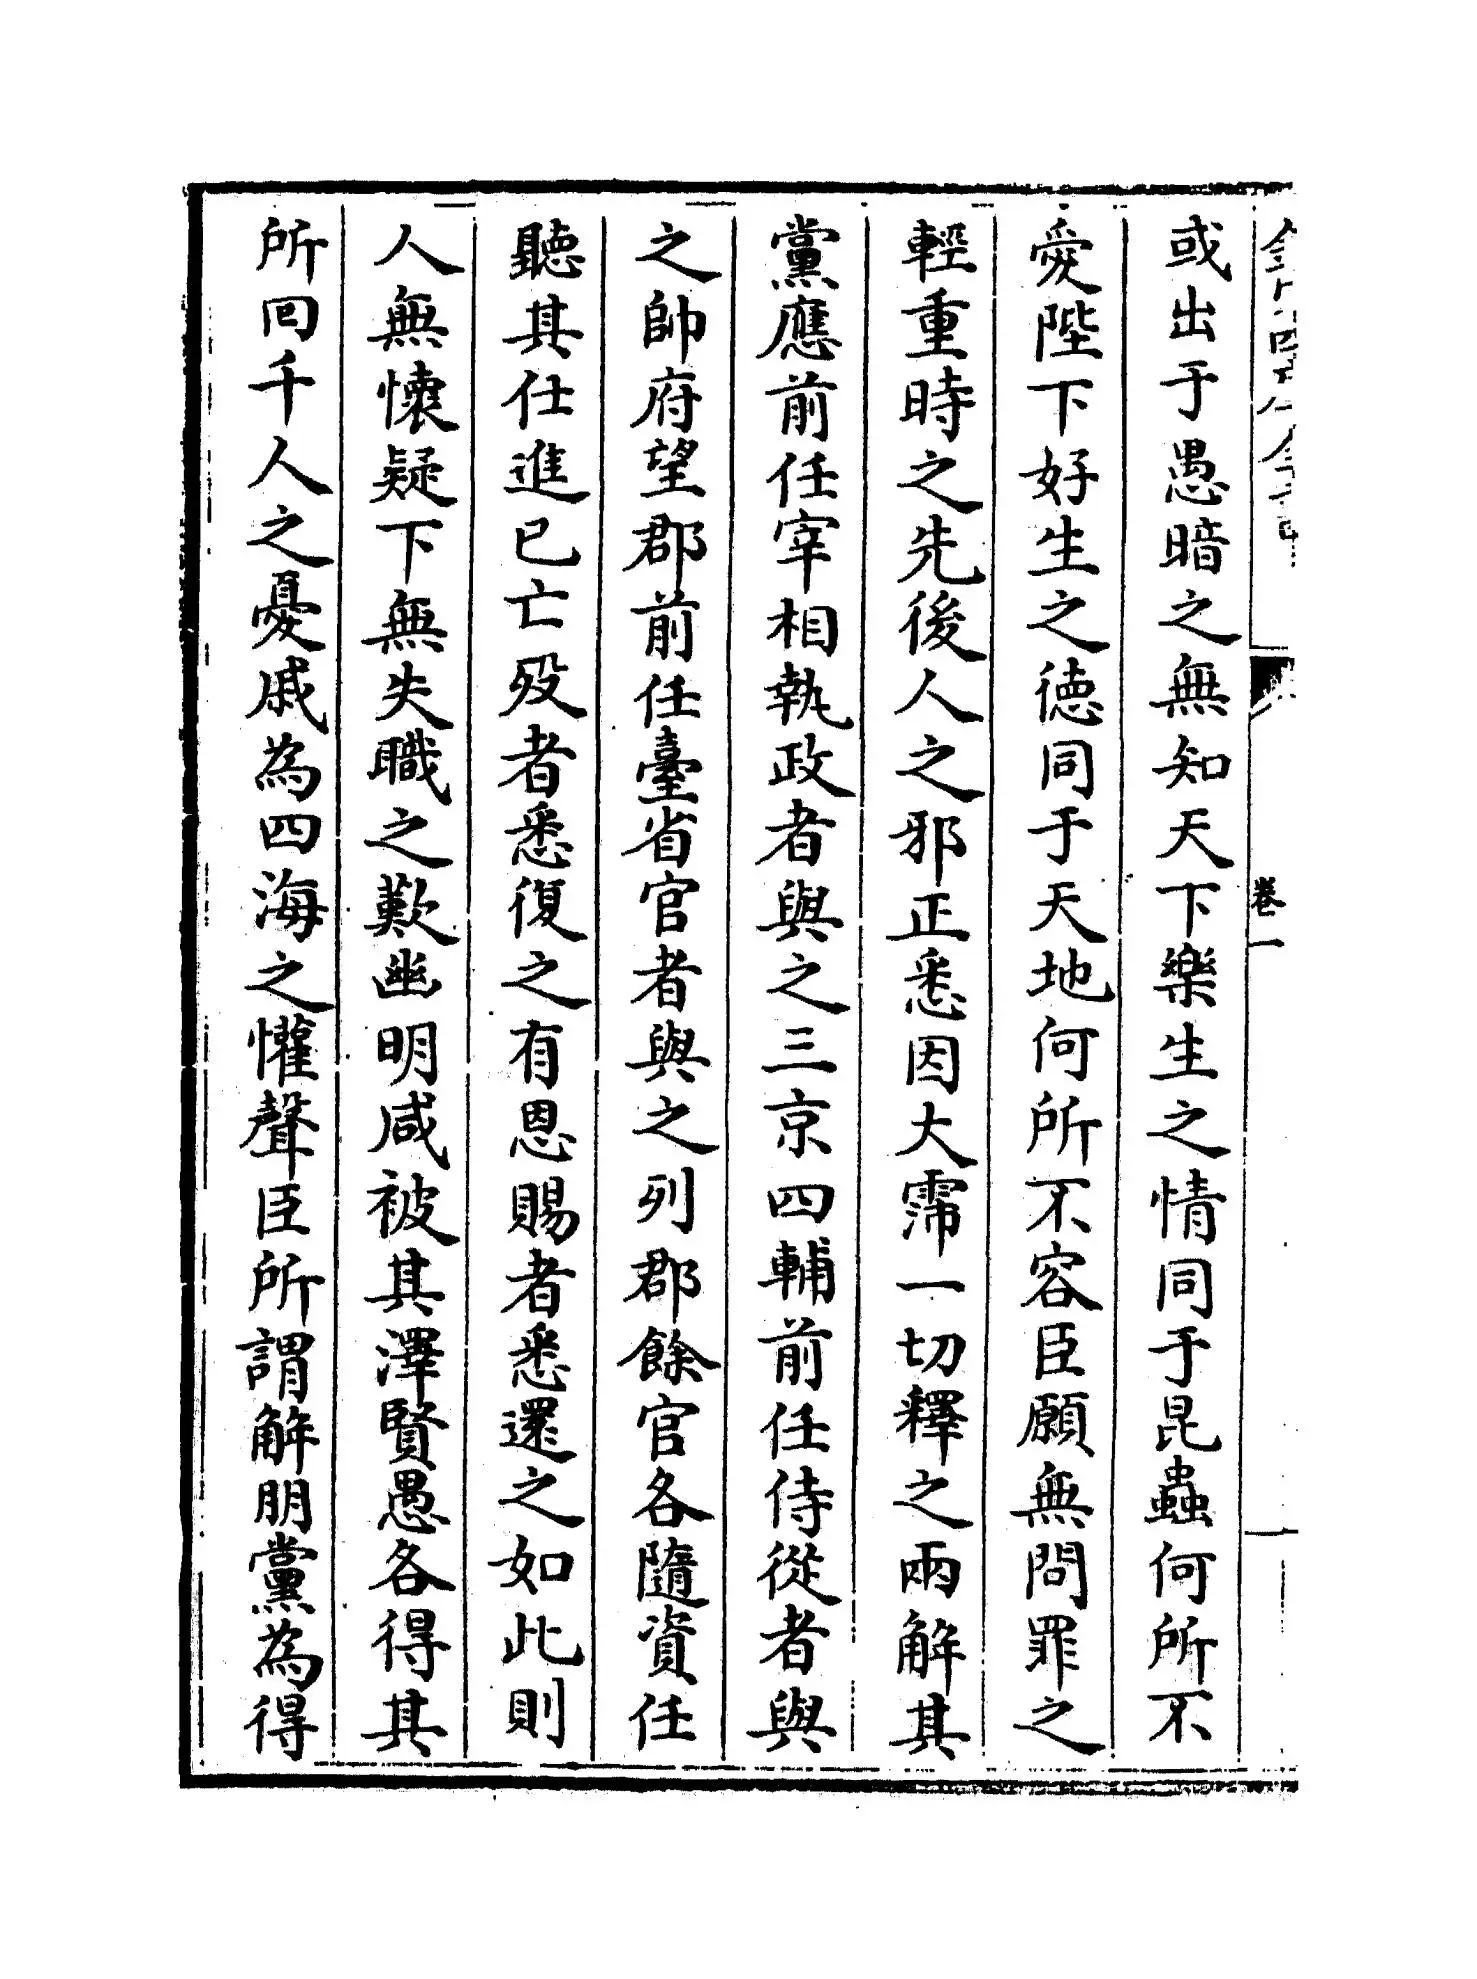 或出于愚暗之無知天下樂生之情同于昆蟲何所不
愛陛下好生之德同于天地何所不容臣願無問罪之
輕重時之先後人之邪正悉因大霈一切釋之兩解其
黨應前任宰相執政者與之三京四輔前任侍從者與
之帥府望郡前任臺省官者與之列郡餘官各隨資任
聽其仕進已亡歿者悉復之有恩賜者悉還之如此則
人無懷疑下無失職之歎幽明咸被其澤賢愚各得其
所回千人之憂戚為四海之懽聲臣所謂解朋黨為得
卷一